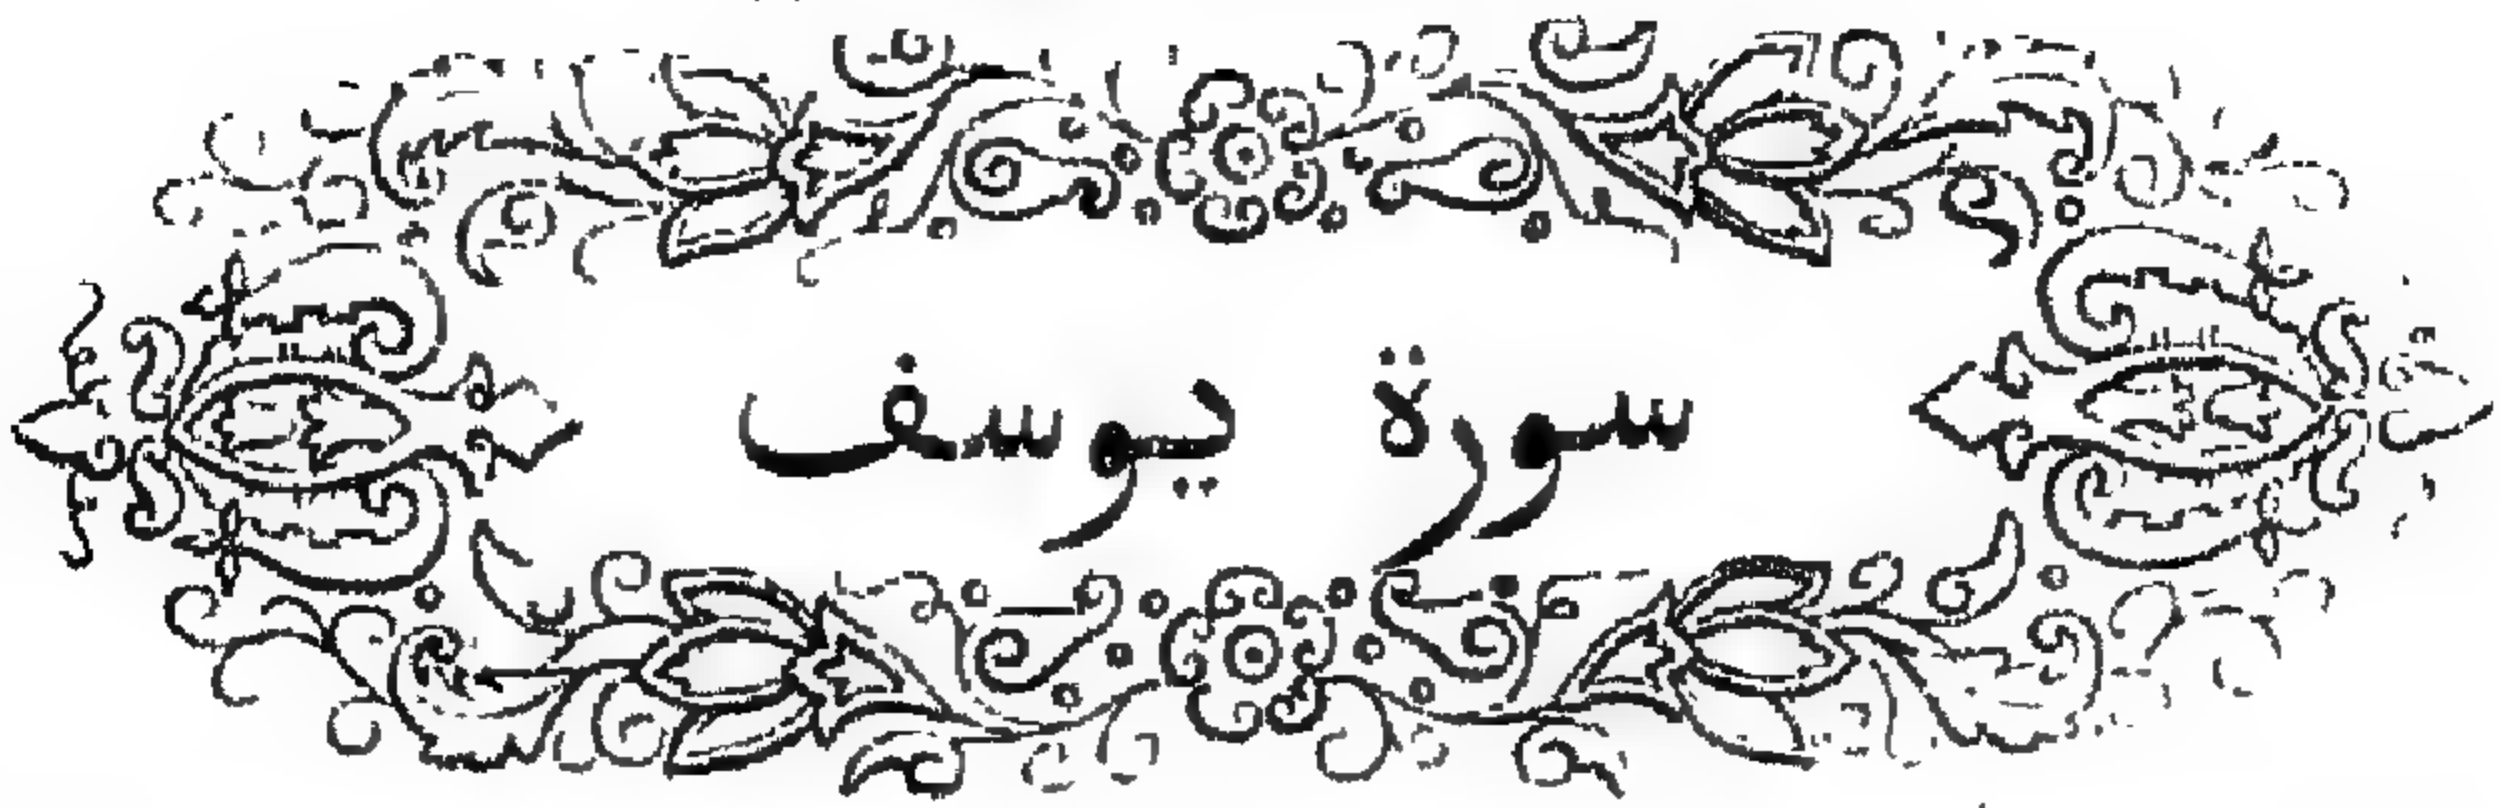 سورة يوسف